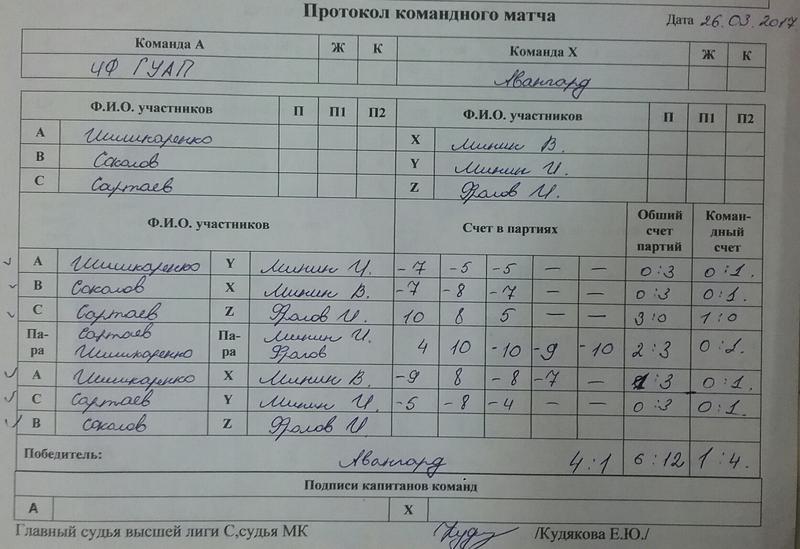 Протокол командного матча
Дата 26.03.2017
Команда А Ж К Команда Х Ж К
ЧФ ГУАП Авангард
Ф.И.О. участников П П1 П2 Ф.И.О. участников П П1 П2
А Шишкаренко X Минин В.
В Соколов Y Минин И.
С Сартаев Z Фролов И.
Ф.И.О. участников Счет в партиях Общий счет партий Коман-дный счет
А Шишкаренко Y Минин И. -7 -5 -5 — — 0:3 0:1.
В Соколов X Минин В. -7 -8 -7 — — 0:3 0:1.
С Сартаев Z Фролов И. 10 8 5 — — 3:0 1:0
Па-ра Сартаев Шишкаренко Па-ра Минин И. Фролов 4 10 -10 -9 -10 2:3 0:1.
А Шишкаренко X Минин В. -9 8 -8 -7 — 1:3 0:1.
С Сартаев Y Минин И. -5 -8 -4 — — 0:3 0:1.
В Соколов Z Фролов И.
Победитель: Авангард 4:1 6:12 1:4.
Подписи капитанов команд
А Х
Главный судья высшей лиги С,судья МК /Кудякова Е.Ю./